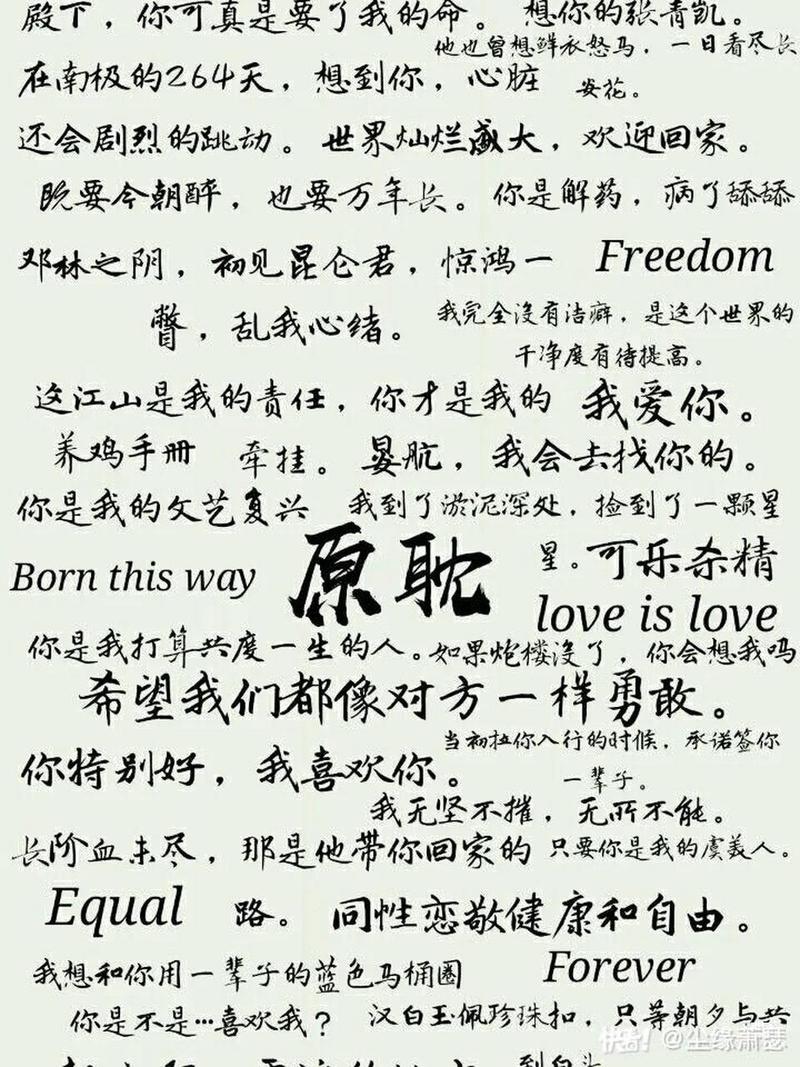 殿下，你可真是要了我的命。 想你的张青凯。
他也曾想鲜衣怒马，一日看尽长
安花。
在南极的264天，想到你，心脏
还会剧烈的跳动。 世界灿烂盛大，欢迎回家。
既要今朝醉，也要万年长。 你是解药，病了舔舔
邓林之阴，初见昆仑君，惊鸿一 Freedom
瞥，乱我心绪。
我完全没有洁癖，是这个世界的
干净度有待提高。
这江山是我的责任，你才是我的 我爱你。
养鸡手册 牵挂。 晏航，我会去找你的。
你是我的文艺复兴 我到了淤泥深处，捡到了一颗星
星。可乐杀精
Born this way 原耽
love is love
你是我打算共度一生的人。如果炮楼没了，你会想我吗
希望我们都像对方一样勇敢。
当初拉你入行的时候，承诺签你
一辈子。
你特别好，我喜欢你。
我无坚不摧，无所不能。
长阶血未尽，那是他带你回家的 只要你是我的虞美人。
Equal 路。 同性恋敬健康和自由。
我想和你用一辈子的蓝色马桶圈 Forever
你是不是…喜欢我？ 汉白玉佩珍珠扣，只等朝夕与共
到白头
@尘缘萧瑟